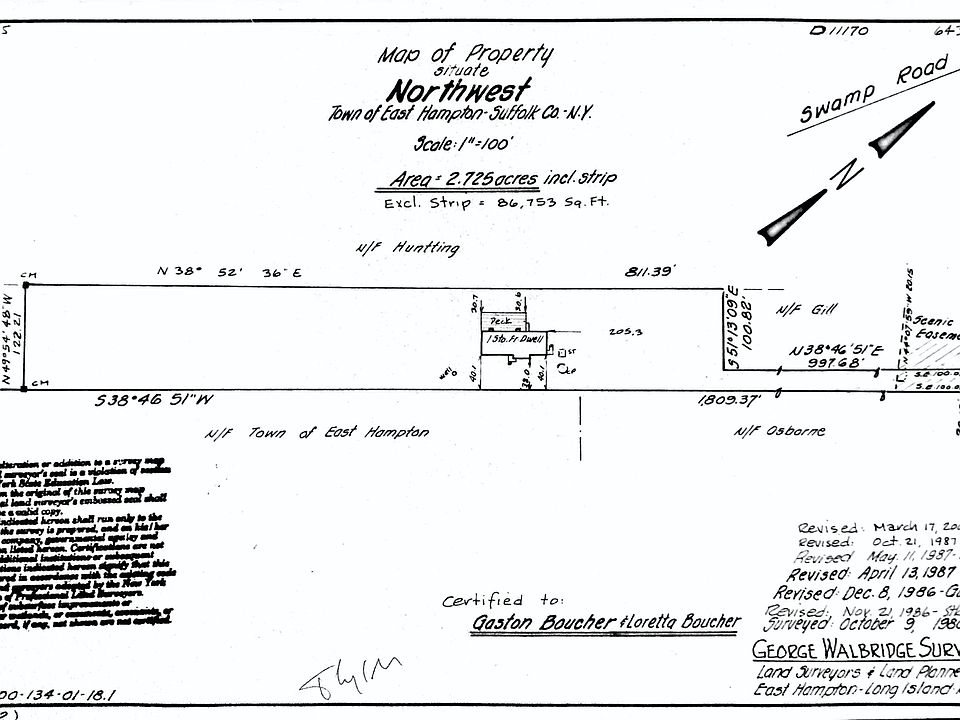 D 11170
Map of Property
situate
Northwest
Town of East Hampton-Suffolk Co.-N.Y.
Scale: 1"=100'
Area = 2.725 acres incl. strip
Excl. Strip = 86,753 Sq. Ft.
Swamp Road
N
N/F Huntting
CM
N 38° 52' 36" E
811.39'
N 49°54'48"W
122.21
S 51°13'09"E
100.82'
N/F Gill
N38°46'51"E
997.68'
Scenic
20.7
20.6
Deck
1 Sto. Fr. Dwell
205.3
ST
40.1
40.1
CM
S38°46 51"W
1,809.37'
N/F Town of East Hampton
N/F Osborne
alteration or addition to a survey map
surveyor's seal is a violation of section
York State Education Law.
the original of this survey map
land surveyor's embossed seal shall
a valid copy.
indicated hereon shall run only to the
the survey is prepared, and on his/her
company, governmental agency and
listed hereon. Certifications are not
additional institutions or subsequent
indicated hereon signify that this
in accordance with the existing code
surveyors adopted by the New York
of Professional Land Surveyors.
of subsurface improvements or
or wetlands, or easements, covenants, or
if any, not shown are not certified.
Revised: March 17,
Revised: Oct. 21, 1987
Revised May. 11, 1987-
Revised: April 13, 1987
Revised: Dec. 8, 1986-
Revised: Nov. 21, 1986-
Surveyed: October 9,
Certified to:
Gaston Boucher & Loretta Boucher
GEORGE WALBRIDGE SURV
Land Surveyors & Land Planne
East Hampton-Long Island-
00-134-01-18.1